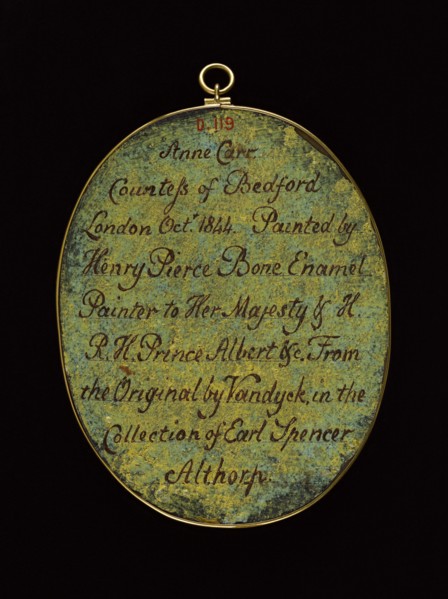 D.119
Anne Carr
Countess of Bedford
London Octr. 1844. Painted by
Henry Pierce Bone Enamel
Painter to Her Majesty & H.
R. H. Prince Albert &c. From
the Original by Vandyck, in the
Collection of Earl Spencer
Althorp.